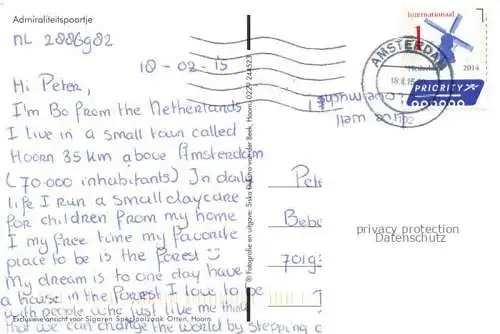 Admiraliteitspoortje
NL 2886982
18-02-15
Hi Peter,
I'm Bo from the Netherlands
I live in a small town called
Hoorn 35 km above Amsterdam
(70.000 inhabitants) In daily
life I run a small daycare
for children from my home
I my free time my favorite
place to be is the forest
My dream is to one day have
a house in the forest I love to be
with people who just live me that
that we can change the world by stepping
Exclusieve ansicht voor Sigaren Speciaalzaak Otten, Hoorn
© Fotografie en uitgave: van der Beek, Hoorn 0229 244523
Internationaal
1
Nederland
2014
PRIORITY
AMSTERDAM
Pete
Bebe
701g
privacy protection
Datenschutz